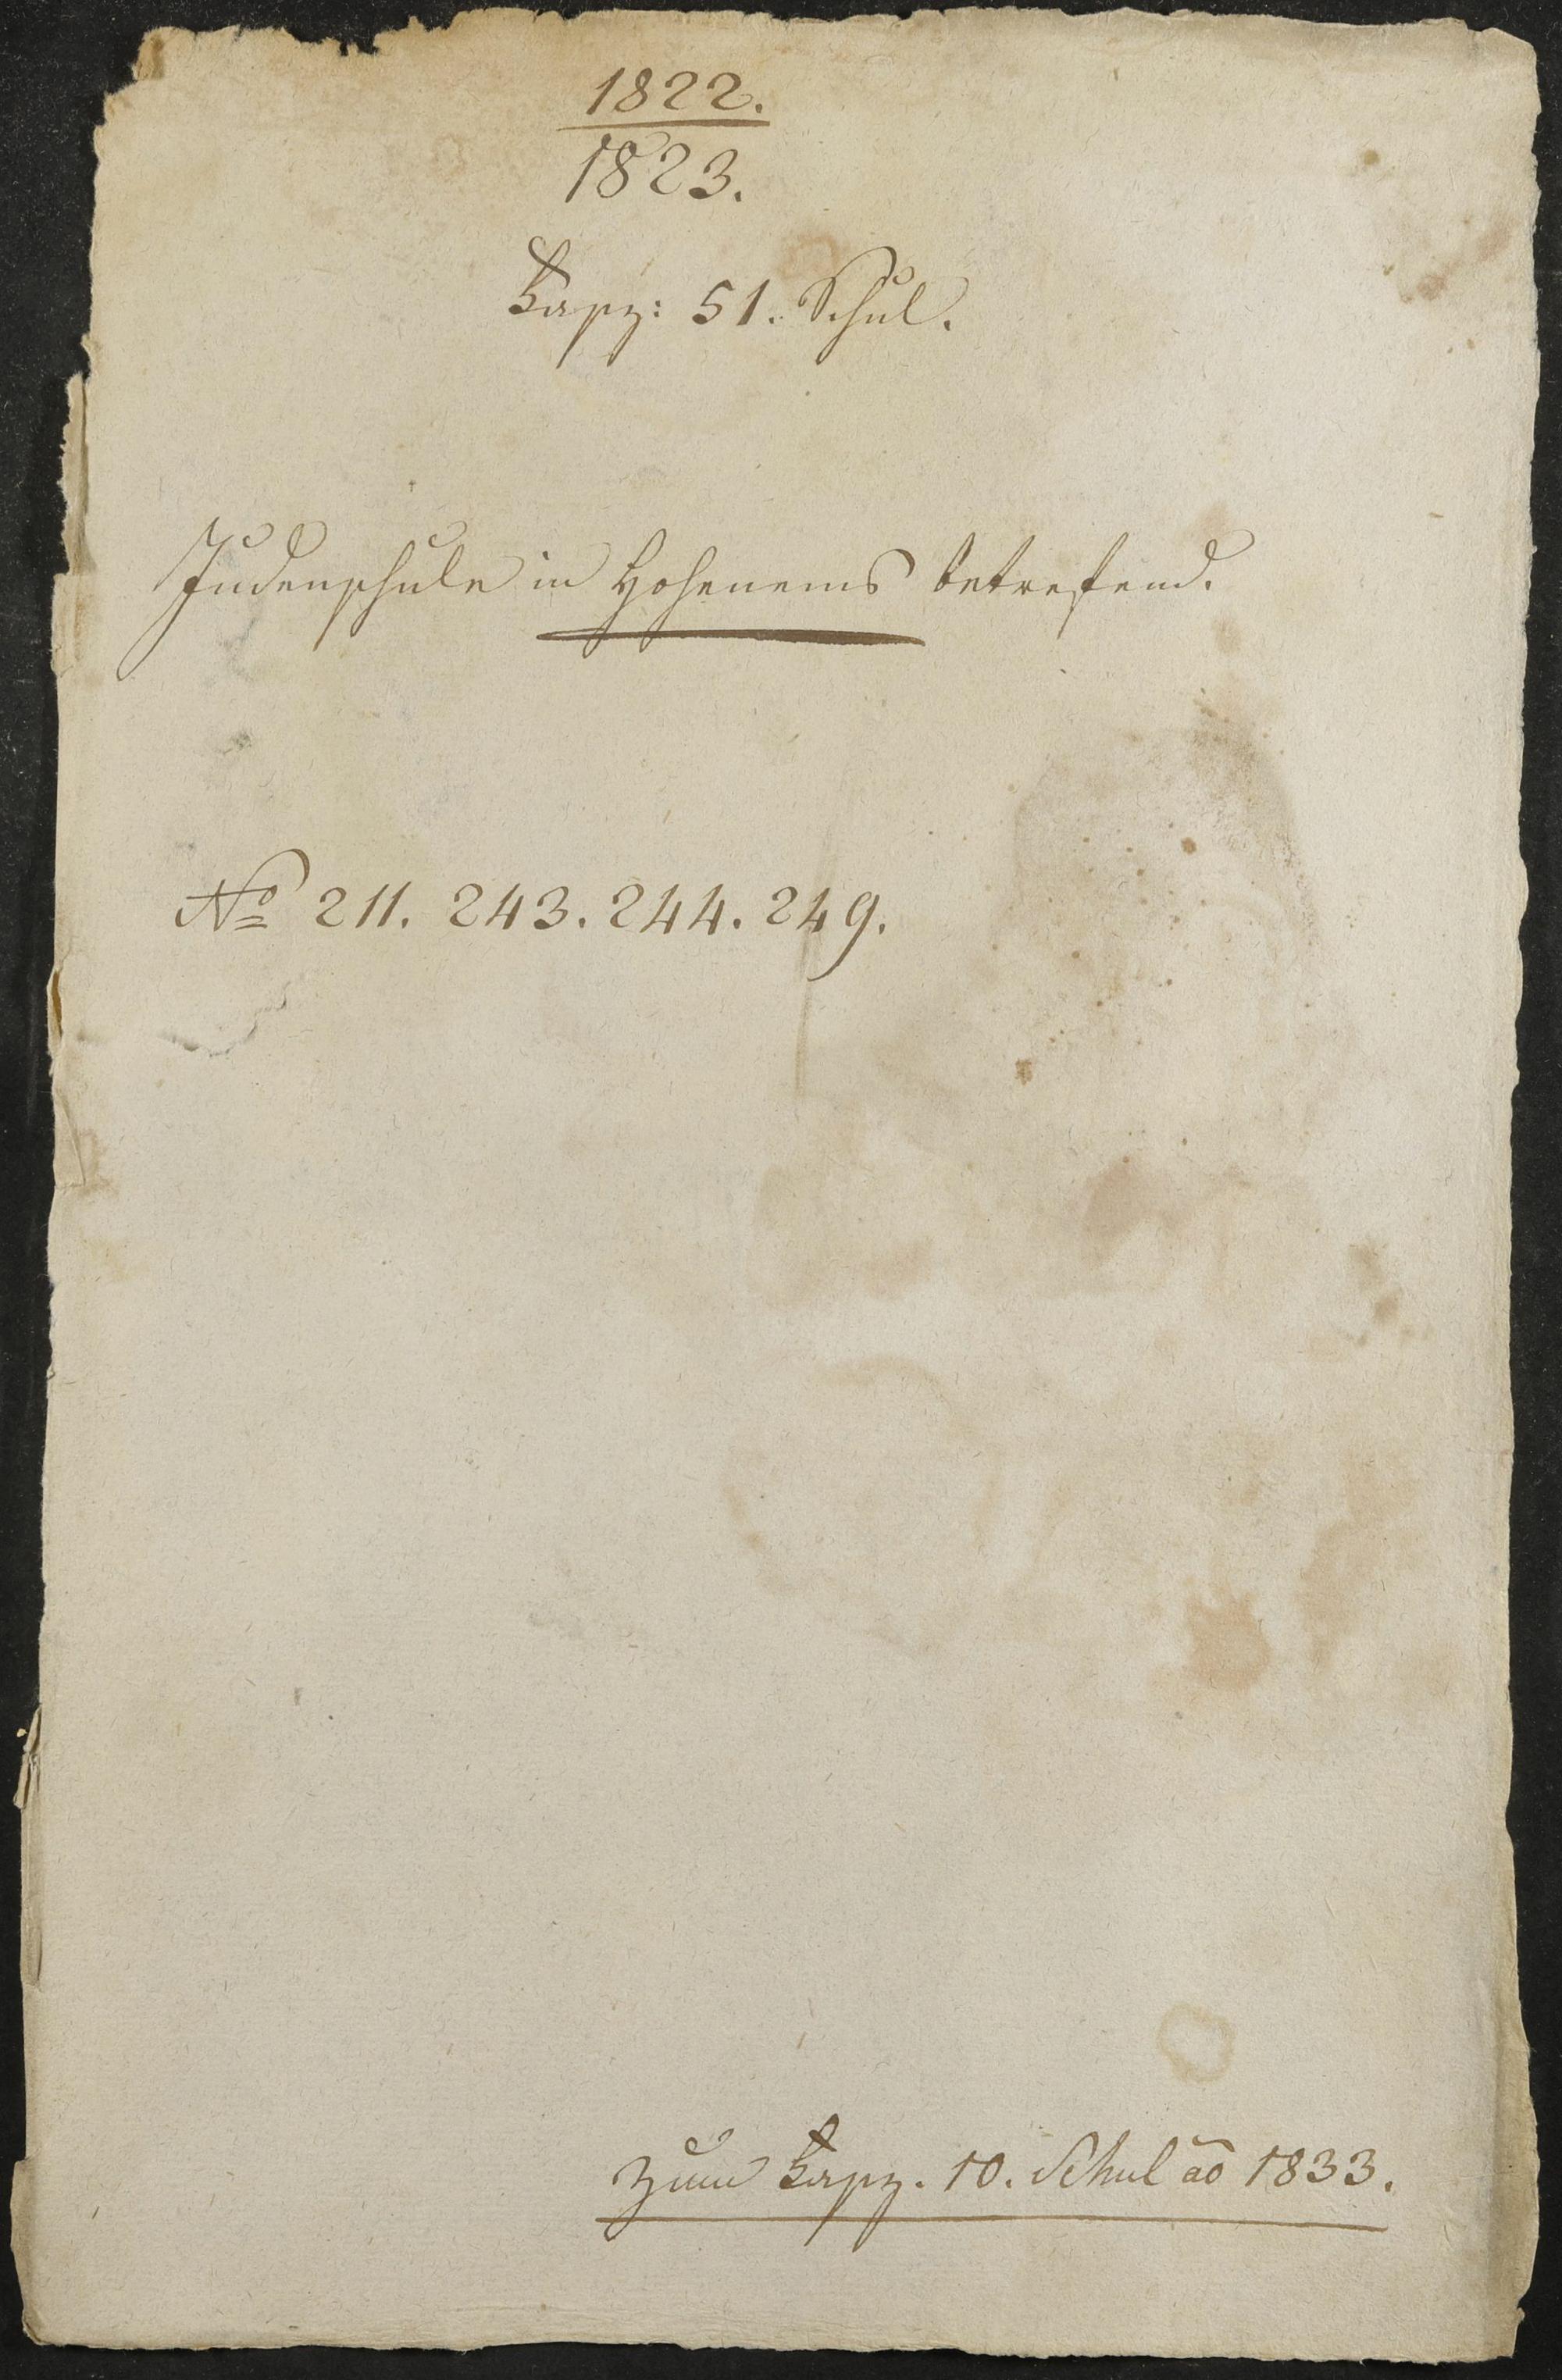 1822.
1823.
Fasz: 51. Schul.
Judenschule in Hohenems betreffend.
No 211. 243. 244. 249.
Zum Fasz. 10. Schul ao 1833.